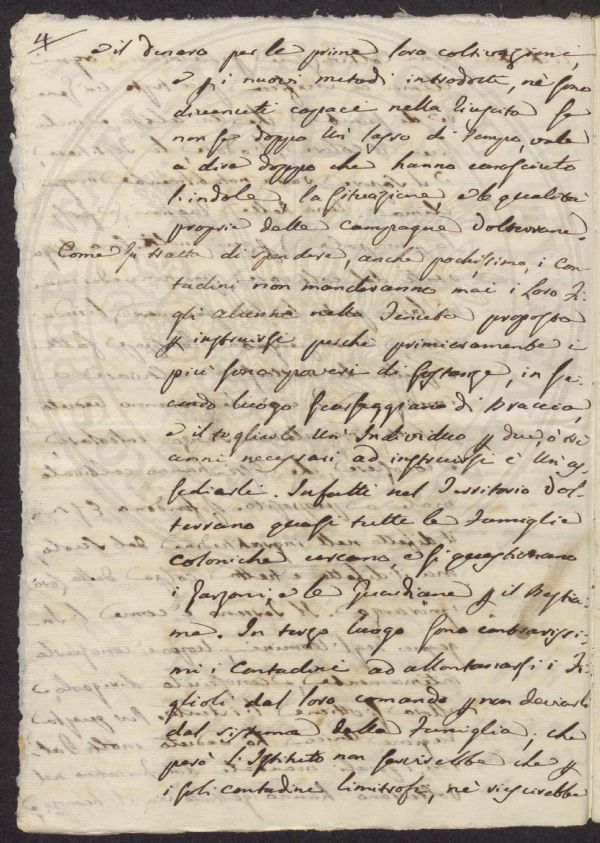 4
e il denaro per le prime loro coltivazioni,
e p i nuovi metodi introdotti, nè sono
divenuti capaci nella riuscita se
non se doppo un lasso di tempo, vale
a dire doppo che hanno conosciuto
l'indole, la situazione, e le qualità
proprie delle campagne Volterrane.
Come si tratta di spendere, anche pochissimo, i Con-
tadini non manderanno mai i Loro Fi-
gli alunni nella Tenuta proposta
p instruirsi perche primieramente i
più sono poveri di sostanze, in se-
condo luogo scarseggiano di Braccia,
e il togliervi un Individuo p due, o sei
anni necessari ad instruirsi è un as-
sediarli. Infatti nel Territorio Vol-
terrano quasi tutte le Famiglie
coloniche cercano, e si questionano
i Garzoni, e le Guardiane p il Bestia-
me. In terzo luogo sono contrarissi-
mi i Contadini ad allontanarsi i Fi-
glioli dal loro comando p non deviarli
dal sistema della Famiglia; che
però l'Istituto non servirebbe che p
i soli contadini limitrofi, nè riuscirebbe